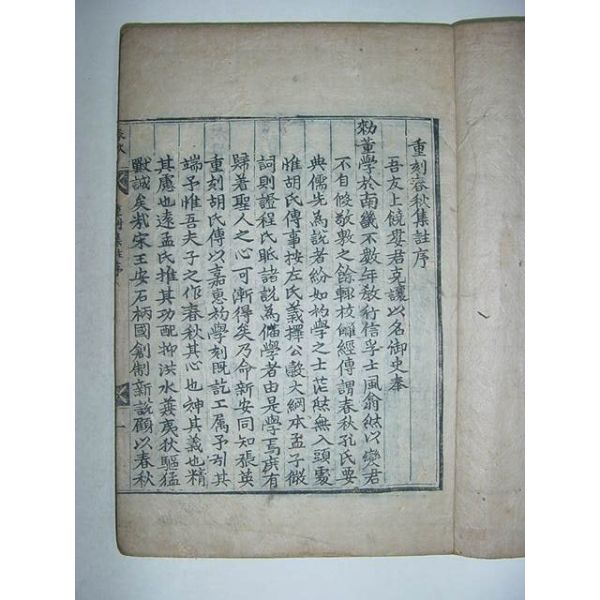 重刻春秋集註序
吾友上饒婁君克讓以名御史奉
勑董學於南畿不數年教行信孚士風翕然以變君
不自假教之餘輙校讎經傳謂春秋孔氏要
典儒先爲說者紛如初學之士茫然無入頭處
惟胡氏傳事按左氏義擇公穀大綱本孟子微
詞則證程氏眂諸說爲僃學者由是學焉庶有
歸著聖人之心可漸得矣乃命新安同知張英
重刻胡氏傳以嘉惠初學刻旣訖工属予引其
端予惟吾夫子之作春秋其心也神其義也精
其慮也遠孟氏推其功配抑洪水兼夷狄驅猛
獸誠矣㢤宋王安石柄國創制新說顧以春秋
集註序
一